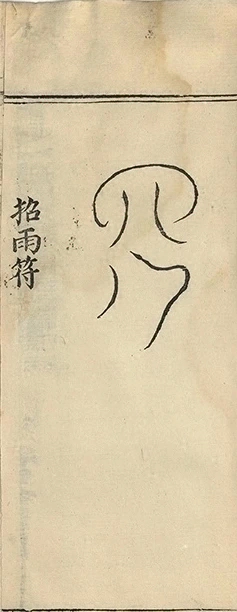 招雨符